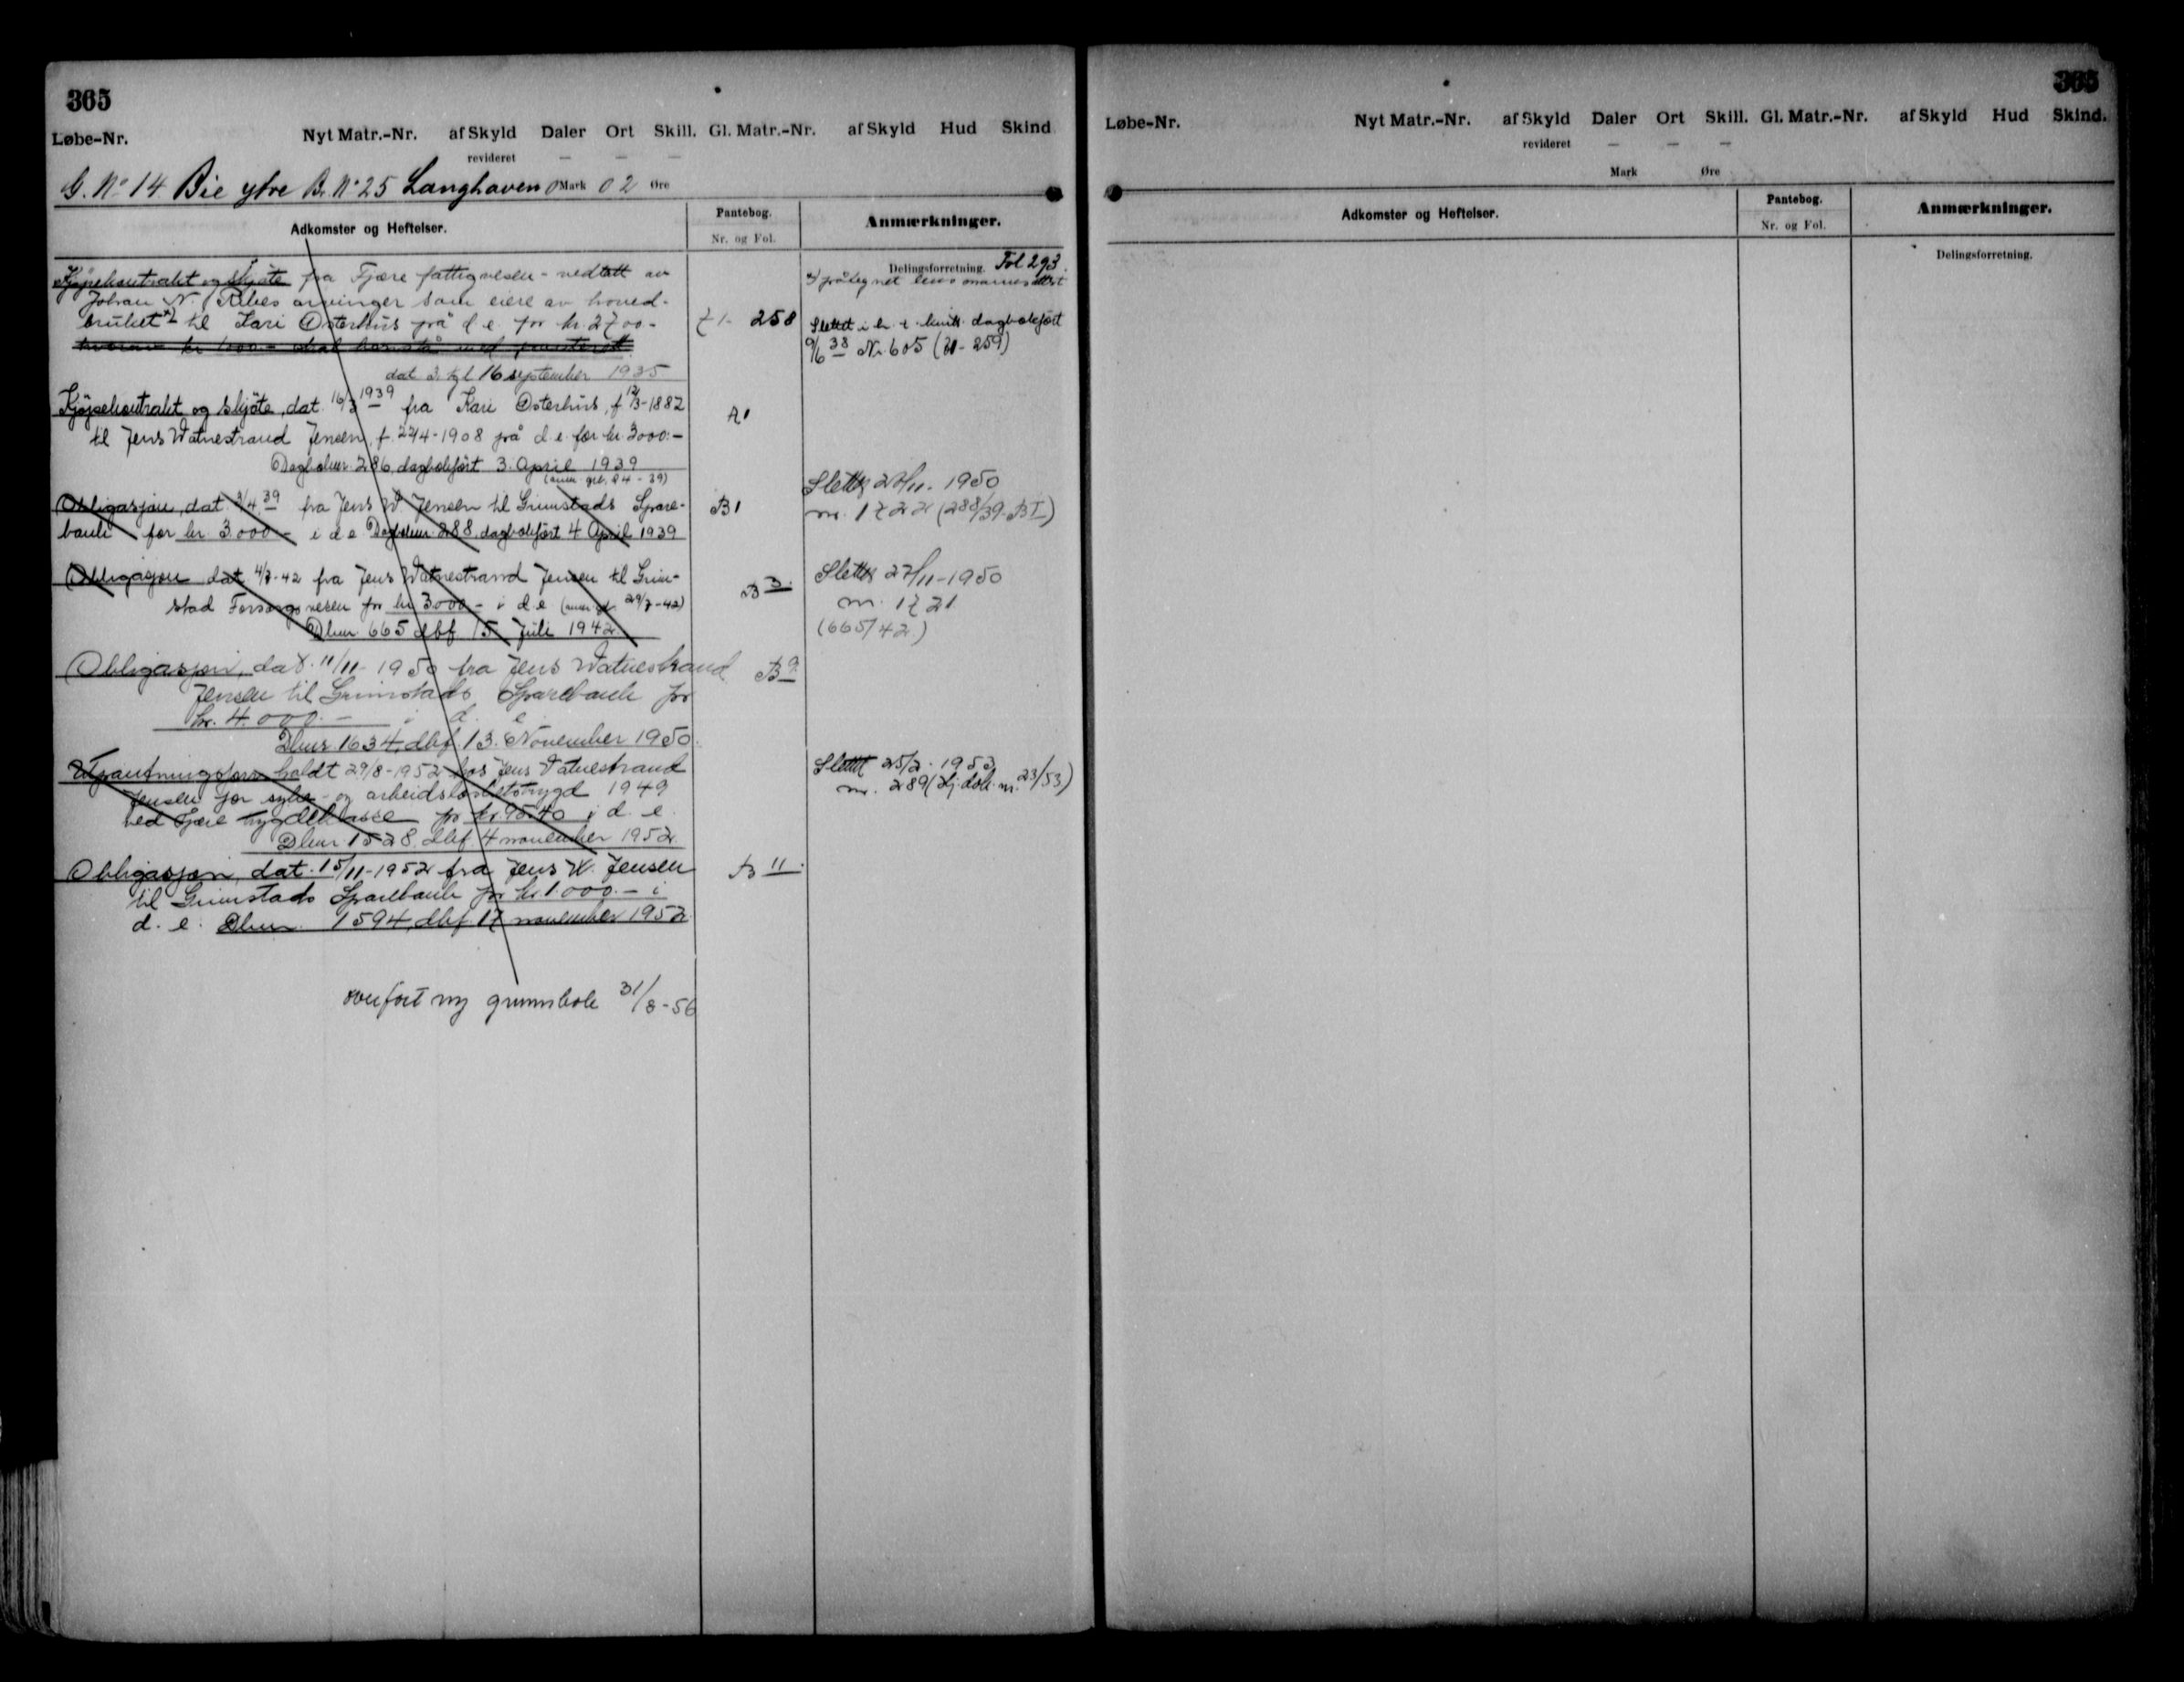 365
Løbe-Nr. Nyt Matr.-Nr. af Skyld Daler Ort Skill. Gl. Matr.-Nr. af Skyld Hud Skind
revideret — — —
G. No 14 Bie ytre Br. No 25 Langhaven 0 Mark 02 Øre
Adkomster og Heftelser.
Pantebog.
Nr. og Fol.
Anmærkninger.
Delingsforretning. Fol 293.
Kjøpekontrakt og skjøte fra Fjære fattigvesen - vedtatt av
Johan N. Ribes arvinger som eiere av hoved-
bruket til Kari Osterhus på d. e. for kr. 2700.-
kr 1000.- skal med panterett
dat. & tgl 16 september 1935
258
x) påtegnet lensmannsattest
Slettet i h. t. kvitt. dagbokført
9/6 38 Nr. 605 (31-259)
Kjøpekontrakt og skjøte, dat. 16/3 1939 fra Kari Osterhus, f. 12/3-1882
til Jens Watnestrand Jensen, f. 22/4-1908 på d. e. for kr. 3000.-
Dagboknr. 286, dagbokført 3. April 1939
A1
Obligasjon, dat. 3/4 39 fra Jens W Jensen til Grimstads Spare-
bank for kr. 3.000.- i d e Dagboknr. 288, dagbokført 4 April 1939
B1
Slettet 27/11-1950
nr. 1722 (288/39-BI)
Obligasjon dat 4/7-42 fra Jens Watnestrand Jensen til Grim-
stad Forsorgsvesen for kr 3000.- i d.e. 29/7-42)
Dbnr 665 dbf 15 Juli 1942
B 3.
Slettet 27/11-1950
nr. 1721
(665/42)
Obligasjon, dat. 11/11-1950 fra Jens Watnestrand
Jensen til Grimstads Sparebank for
kr. 4.000.- i d. e.
Dbnr. 1634, dbf. 13. November 1950.
B 9.
Utpantningsforr. holdt 29/8-1952 hos Jens Vatnestrand
Jensen for syke- og arbeidsløshetstrygd 1949
ved Fjære trygdekasse for kr. 95.40 i d. e.
Dbnr 1528, dbf. 4 november 1952.
Slettet 25/2-1953
nr. 289 (Hj.dok. nr. 23/53)
Obligasjon, dat. 15/11-1952 fra Jens W. Jensen
til Grimstads Sparebank for kr. 1.000.- i
d. e. Dbnr. 1594, dbf. 17 november 1952.
B 11.
overført ny grunnbok 31/8-56
365
Løbe-Nr. Nyt Matr.-Nr. af Skyld Daler Ort Skill. Gl. Matr.-Nr. af Skyld Hud Skind.
revideret — — —
Mark Øre
Adkomster og Heftelser.
Pantebog.
Nr. og Fol.
Anmærkninger.
Delingsforretning.